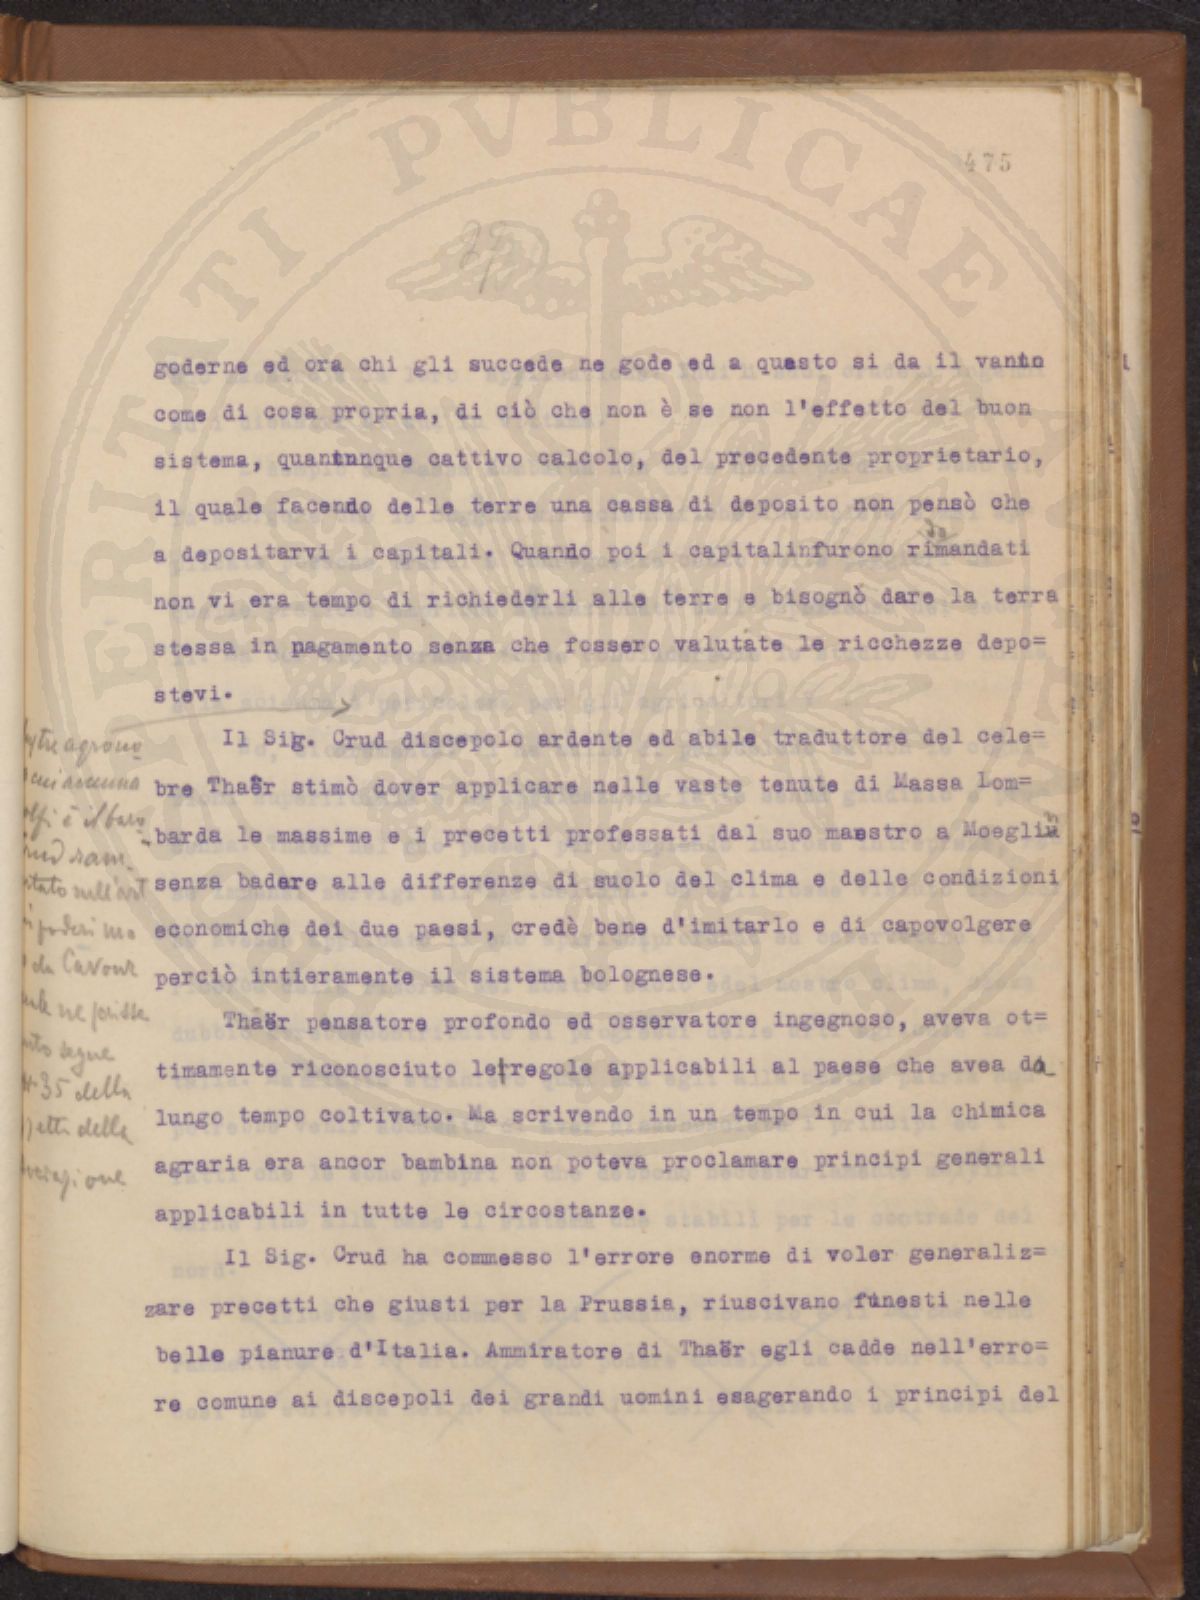 PROSPERITATI PUBLICAE AUGENDAE
475
goderne ed ora chi gli succede ne gode ed a questo si da il vanto
come di cosa propria, di ciò che non è se non l'effetto del buon
sistema, quantunque cattivo calcolo, del precedente proprietario,
il quale facendo delle terre una cassa di deposito non pensò che
a depositarvi i capitali. Quando poi i capitali furono rimandati
non vi era tempo di richiederli alle terre e bisognò dare la terra
stessa in pagamento senza che fossero valutate le ricchezze depo=
stevi.
Il Sig. Crud discepolo ardente ed abile traduttore del cele=
bre Thaër stimò dover applicare nelle vaste tenute di Massa Lom=
barda le massime e i precetti professati dal suo maestro a Moeglin
senza badare alle differenze di suolo del clima e delle condizioni
economiche dei due paesi, credè bene d'imitarlo e di capovolgere
perciò intieramente il sistema bolognese.
Thaër pensatore profondo ed osservatore ingegnoso, aveva ot=
timamente riconosciuto le regole applicabili al paese che avea da
lungo tempo coltivato. Ma scrivendo in un tempo in cui la chimica
agraria era ancor bambina non poteva proclamare principi generali
applicabili in tutte le circostanze.
Il Sig. Crud ha commesso l'errore enorme di voler generaliz=
zare precetti che giusti per la Prussia, riuscivano funesti nelle
belle pianure d'Italia. Ammiratore di Thaër egli cadde nell'erro=
re comune ai discepoli dei grandi uomini esagerando i principi del
agrono
cui accenna
è il baro
nell'art
poderi mo
da Cavour
ne scrisse
segue
35 della
della